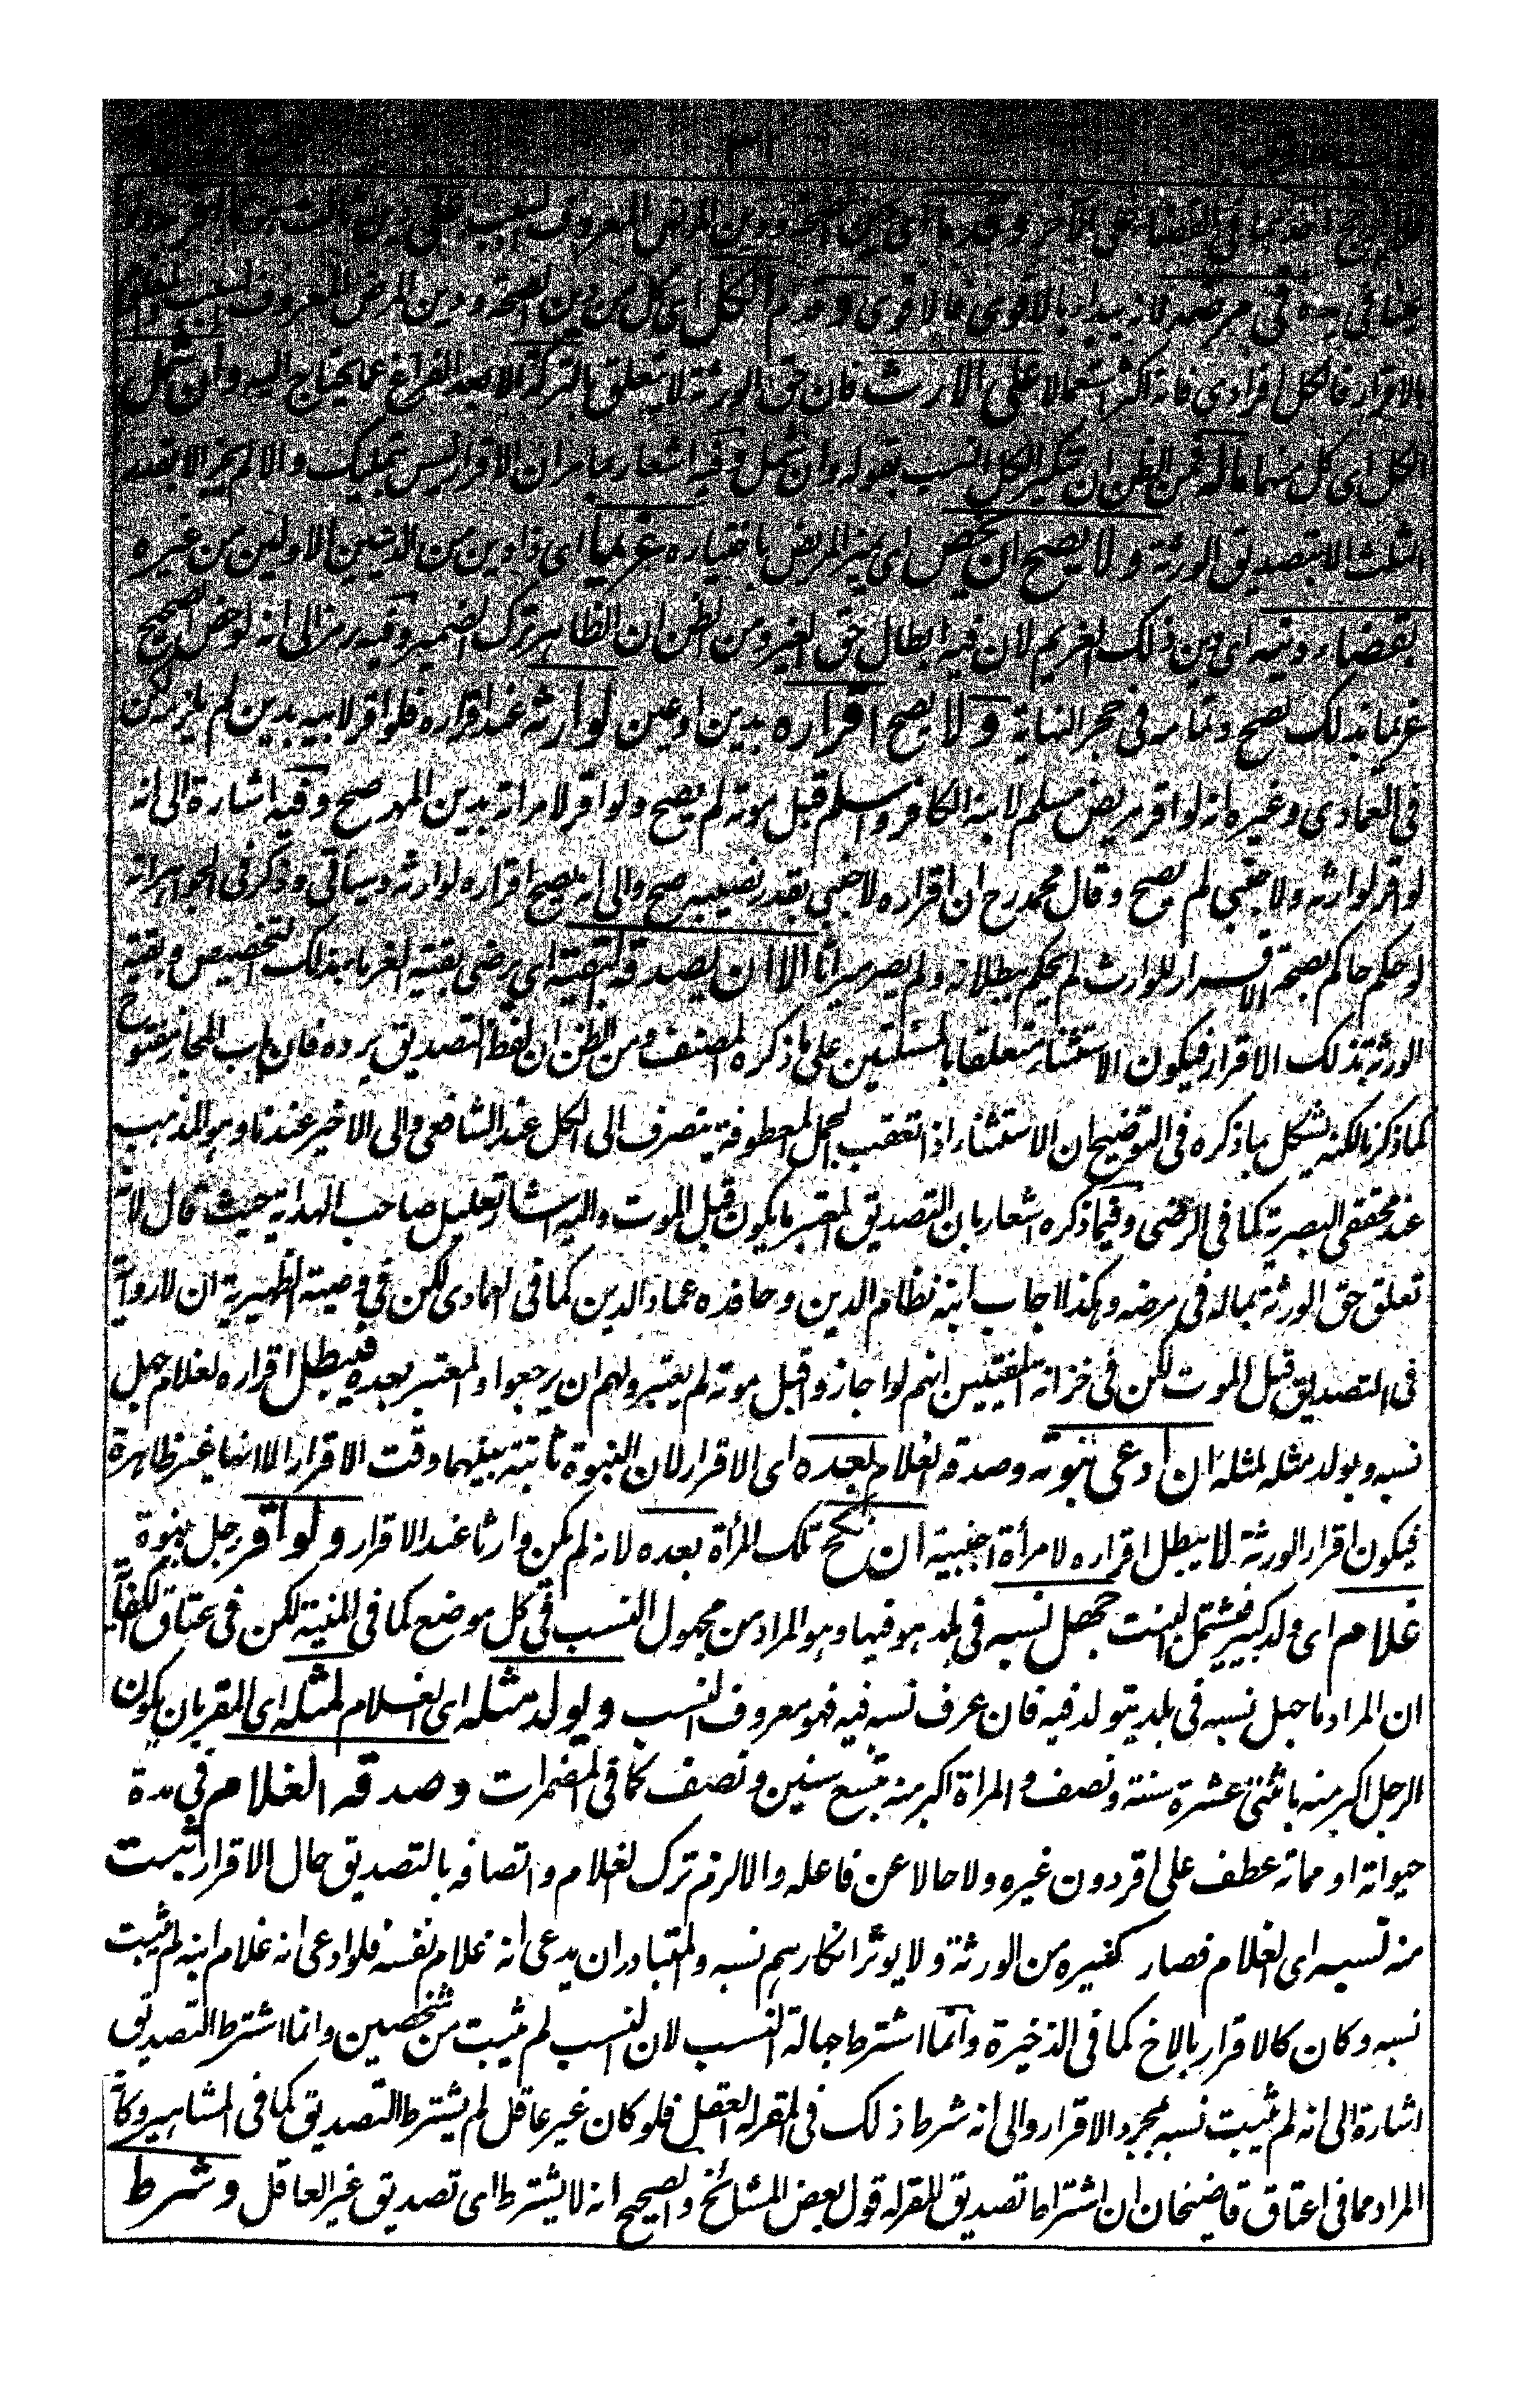 في مرضه لانه يبدأ بالاقوى فالاقوى وقدم الكل اى كل من دين الصحة ودين المرض المعروف السبب
بالاقرار فالكل افرادى فانه اكثر استعمالا على الارث فان حق الورثة لا يتعلق بالتركة الا بعد الفراغ عما يحتاج اليه وان شمل
الكل اى كل منهما ماله فمن الظن ان تخيير الكل انسب بقوله وان شمل وفيه اشعار بما مر ان الاقرار ليس بتمليك والا لم يجز الا بقدر
الثلث الا بتصديق الورثة ولا يصح ان يخص اى يميز المريض باختياره غريما اى ذا دين من الدينين الاولين من غيره
بقضاء دينه اى دين ذلك الغريم لان فيه ابطال حق الغير ومن الظن ان الظاهر ترك الضمير وفيه رمز الى انه لو خص الصحيح
غريما بذلك تصح وتمامه فى حجر النهاية ولا يصح اقراره بدين او عين لوارثه عند اقراره فلو اقر لابيه بدين لم يلزم لكن
فى العمادى وغيره انه لو اقر مريض مسلم لابنه الكافر واسلم قبل موته لم يصح ولو اقر لامراته بدين المهر صح وفيه اشارة الى انه
لو اقر لوارثه ولاجنبى لم يصح وقال محمد رح ان اقراره لاجنبى بقدر نصيبه صح والى انه يصح اقراره لوارثه وسيأتى وذكر فى الجواهر انه
او حكم حاكم بصحة الاقرار للوارث لم يحكم ببطلانه ولم يصر ميراثا الا ان يصدقه البقية اى يرضى بقية الغرماء بذلك التخصيص وبقية
الورثة بذلك الاقرار فيكون الاستثناء متعلقا بالمسئلتين على ما ذكره المصنف ومن الظن ان لفظ التصديق يرده فان باب المجاز مفتوح
كما ذكرنا لكنه يشكل بما ذكره فى التوضيح ان الاستثناء اذا تعقب الجمل المعطوفة ينصرف الى الكل عند الشافعى والى الاخير عندنا وهو المذهب
عند محققى البصرية كما فى الرضى وفيما ذكره اشعار بان التصديق المعتبر ما يكون قبل الموت واليه اشار تعليل صاحب الهداية حيث قال لانه
تعلق حق الورثة بماله فى مرضه وهكذا اجاب ابنه نظام الدين وحافده عماد الدين كما فى العمادى لكن فى وصية الظهيرية ان لا رواية
فى التصديق قبل الموت لكن فى خزانة المفتيين انهم لو اجازوا قبل موته لم يعتبر ولهم ان يرجعوا والمعتبر بعده فيبطل اقراره لغلام جهل
نسبه ويولد مثله لمثله ان ادعى بنوته وصدقه الغلام بعده اى الاقرار لان البنوة ثابتة بينهما وقت الاقرار الا انها غير ظاهرة
فيكون اقرار الورثة لا يبطل اقراره لامرأة اجنبية ان نكح تلك المرأة بعده لانه لم يكن وارثا عند الاقرار ولو اقر رجل ببنوة
غلام اى ولد كبير فيشتمل البنت جهل نسبه فى بلد هو فيها وهو المراد من مجهول النسب فى كل موضع كما فى المنية لكن فى عتاق الكفاية
ان المراد ما جهل نسبه فى بلد يتولد فيه فان عرف نسبه فيه فهو معروف النسب ويولد مثله اى الغلام لمثله اى المقر بان يكون
الرجل اكبر منه باثنتى عشرة سنة ونصف والمراة اكبر منه بتسع سنين ونصف كما فى المضمرات وصدقه الغلام فى مدة
حيواته او مماته عطف على اقر دون غيره ولا حالا عن فاعله والا لزم ترك الغلام واتصافه بالتصديق حال الاقرار ثبت
منه نسبه اى الغلام فصار كغيره من الورثة ولا يوثر انكارهم نسبه والمتبادر ان يدعى انه غلام نفسه فلو ادعى انه غلام ابنه لم يثبت
نسبه وكان كالاقرار بالاخ كما فى الذخيرة وانما اشترط جهالة النسب لان النسب لم يثبت من شخصين وانما اشترط التصديق
اشارة الى انه لم يثبت نسبه بمجرد الاقرار والى انه شرط ذلك فى المقر له العقل فلو كان غير عاقل لم يشترط التصديق كما فى المشاهير وكان
المراد مما فى اعتاق قاضيخان ان اشتراط تصديق المقر له قول بعض المشائخ والصحيح انه لا يشترط اى تصديق غير العاقل وشرط